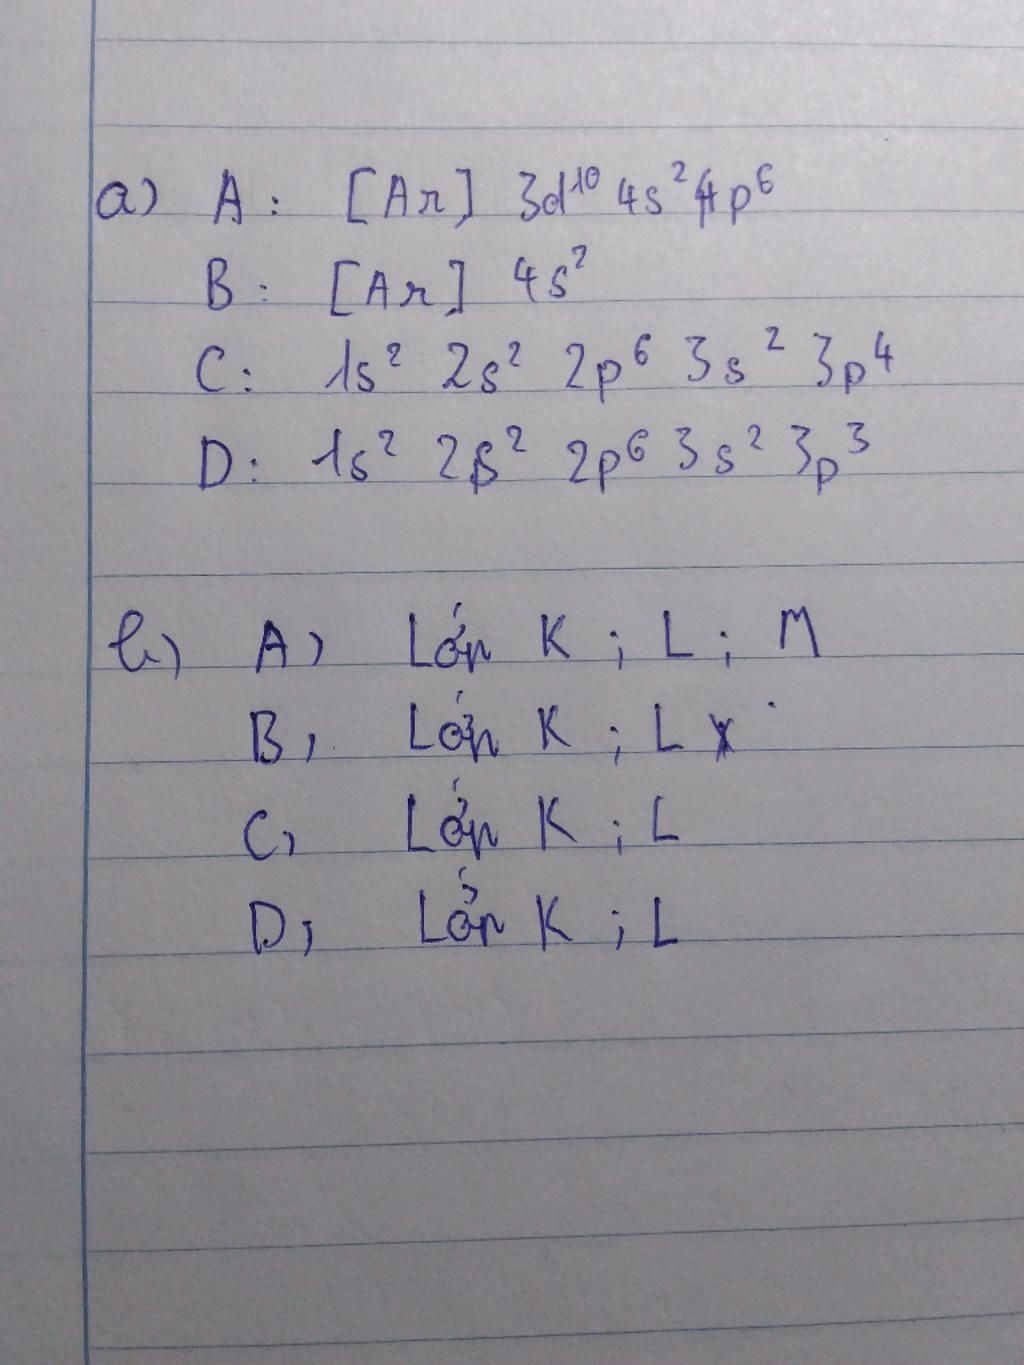 a) A: [Ar] 3d¹⁰ 4s² 4p⁶
B: [Ar] 4s²
C: 1s² 2s² 2p⁶ 3s² 3p⁴
D: 1s² 2s² 2p⁶ 3s² 3p³
b) A) Lớp K ; L ; M
B) Lớp K ; L
C) Lớp K ; L
D) Lớp K ; L